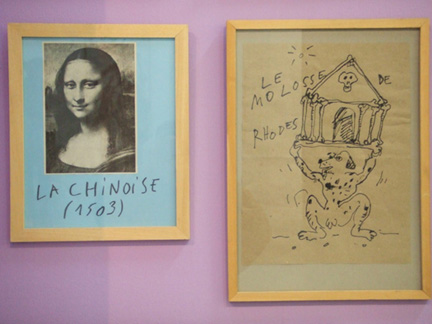 LA CHINOISE
(1503)
LE
MOLOSSE DE
RHODES